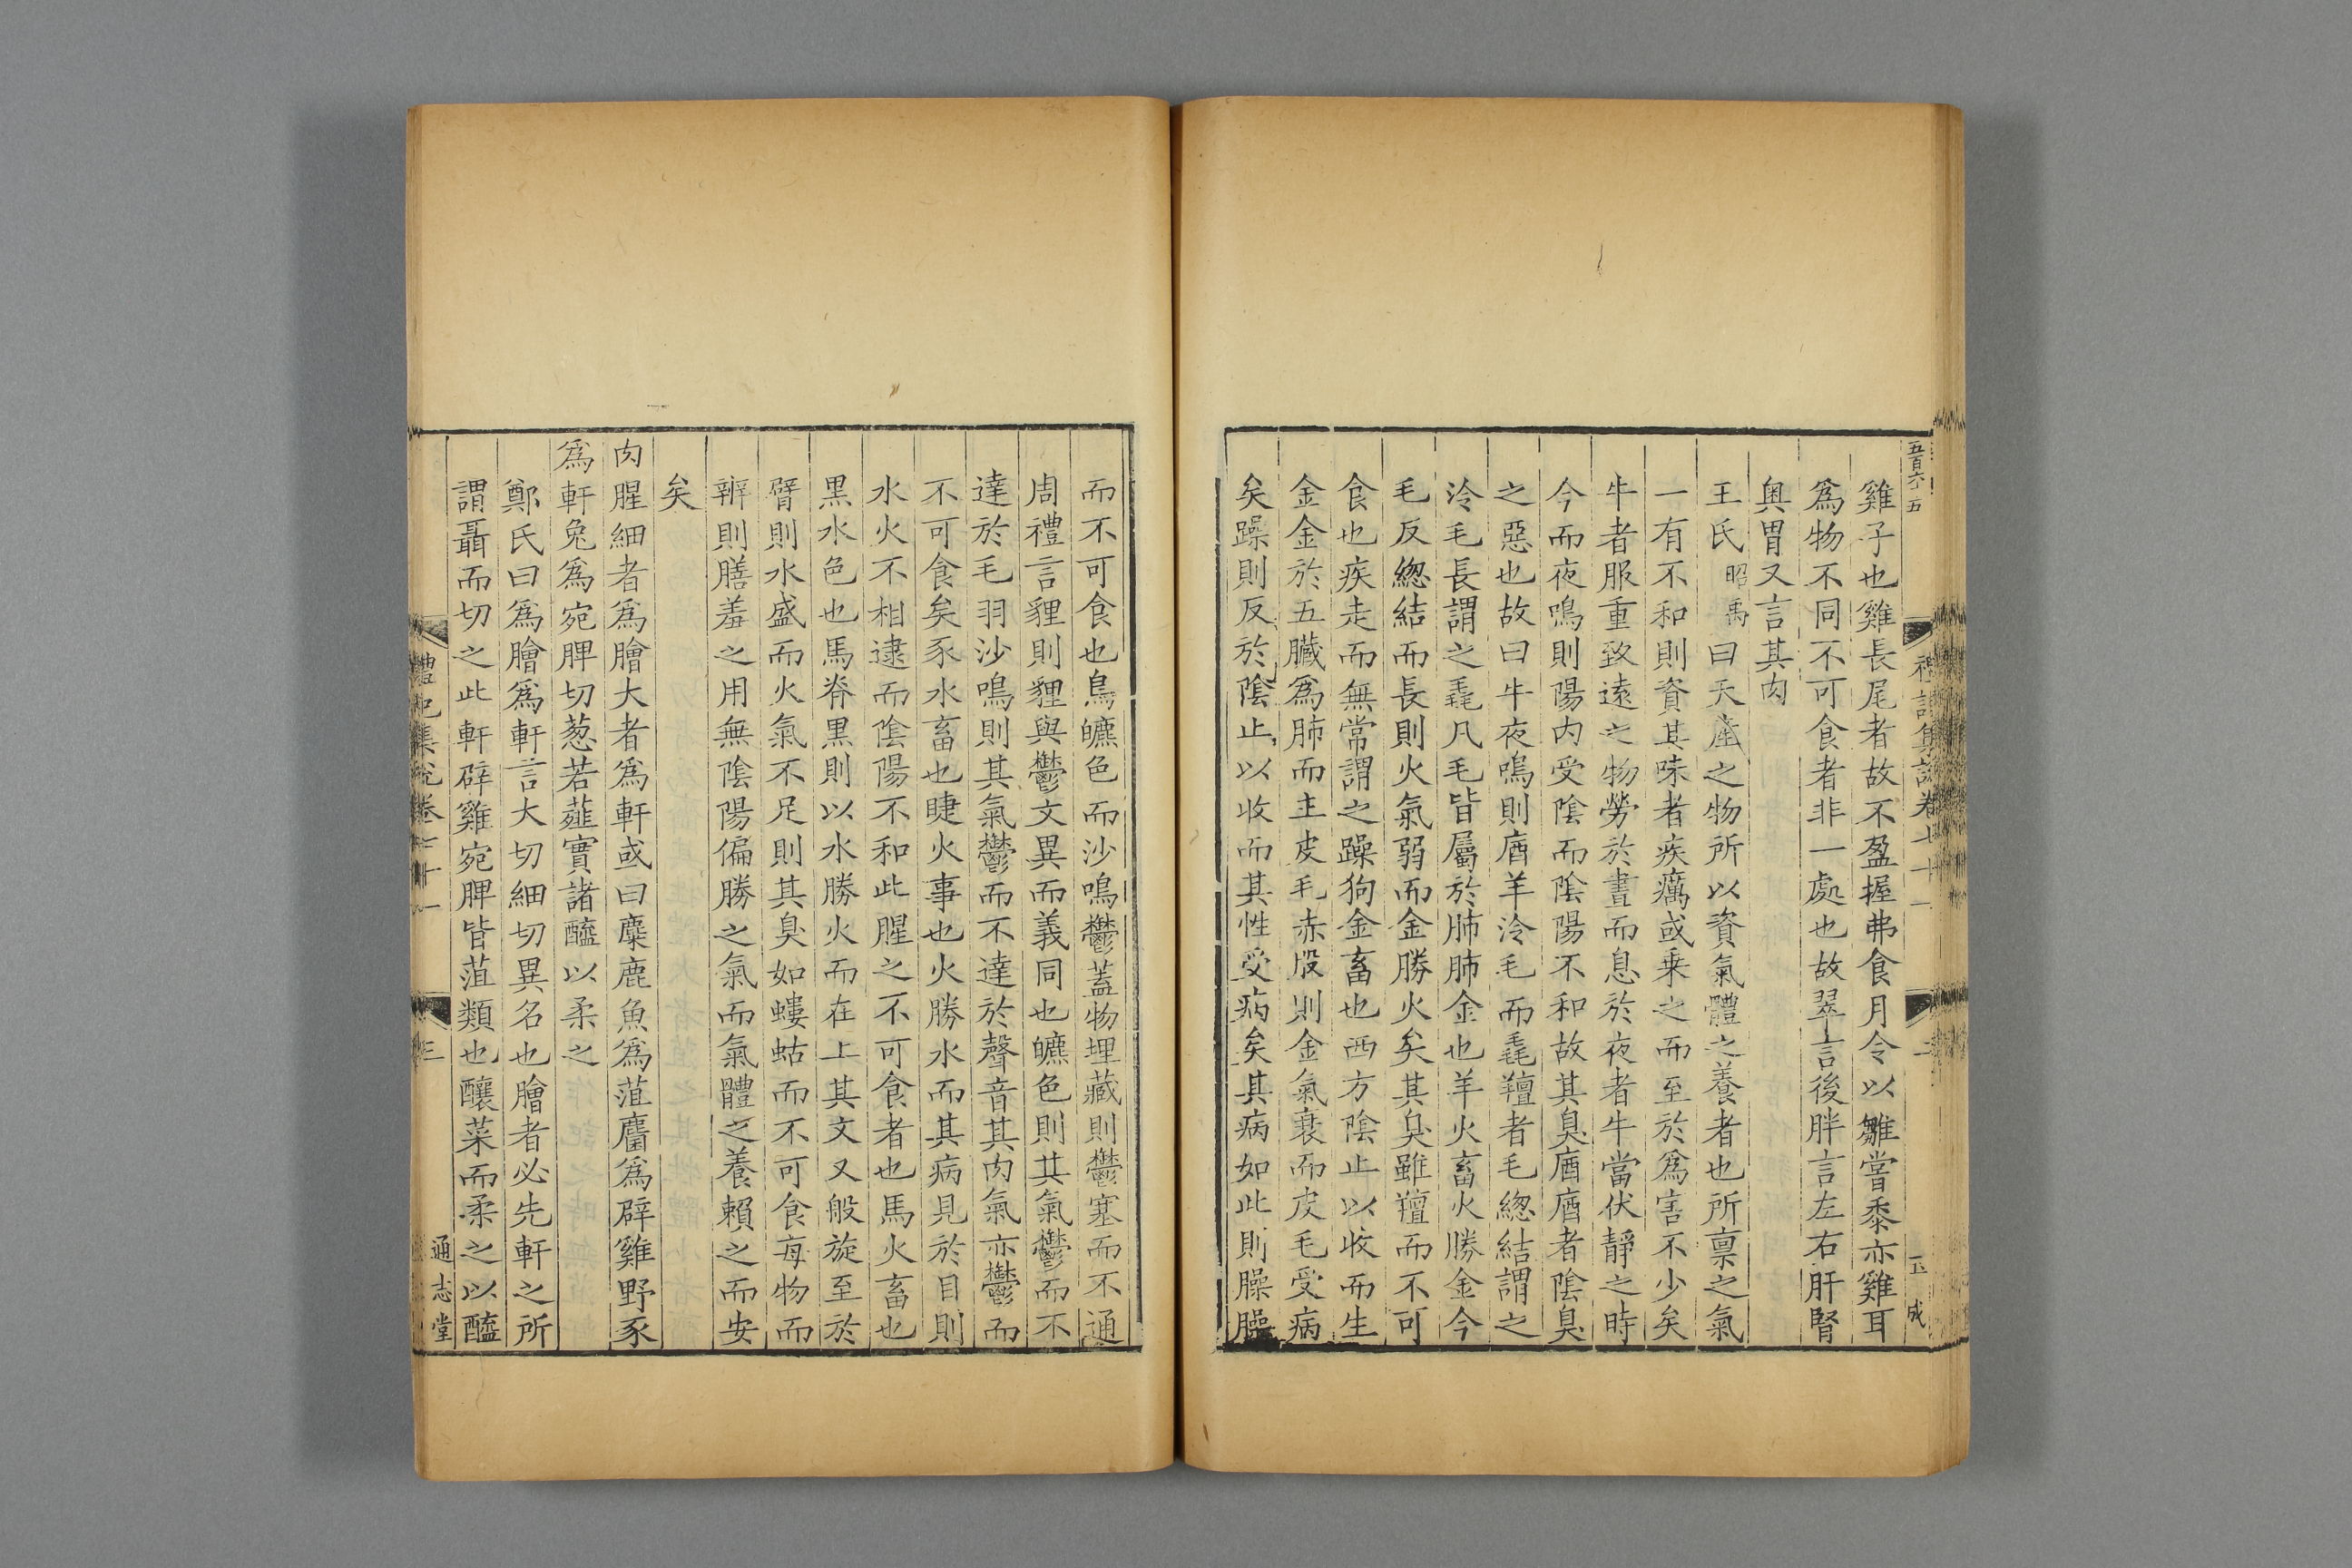 五百六十五
雞子也雞長尾者故不盈握弗食月令以雛嘗黍亦雞耳
爲物不同不可食者非一處也故翠言後胖言左右肝腎
奧胃又言其肉
王氏昭禹曰天產之物所以資氣體之養者也所稟之氣
一有不和則資其味者疾癘或乗之而至於爲害不少矣
牛者服重致遠之物勞於晝而息於夜者牛當伏靜之時
今而夜鳴則陽内受陰而陰陽不和故其臭庮庮者陰臭
之惡也故曰牛夜鳴則庮羊泠毛而毳羶者毛緫結謂之
泠毛長謂之毳凡毛皆屬於肺肺金也羊火畜火勝金今
毛反緫結而長則火氣弱而金勝火矣其臭雖羶而不可
食也疾走而無常謂之躁狗金畜也西方陰止以收而生
金金於五臟爲肺而主皮毛赤股則金氣衰而皮毛受病
矣躁則反於陰止以收而其性受病矣其病如此則臊臊
而不可食也鳥皫色而沙鳴鬱蓋物埋藏則鬱塞而不通
周禮言貍則貍與鬱文異而義同也皫色則其氣鬱而不
達於毛羽沙鳴則其氣鬱而不達於聲音其肉氣亦鬱而
不可食矣豕水畜也睫火事也火勝水而其病見於目則
水火不相逮而陰陽不和此腥之不可食者也馬火畜也
黒水色也馬脊黒則以水勝火而在上其文又般旋至於
臂則水盛而火氣不足則其臭如螻蛄而不可食毎物而
辨則膳羞之用無陰陽偏勝之氣而氣體之養賴之而安
矣
肉腥細者爲膾大者爲軒或曰麋鹿魚爲菹麕爲辟雞野豕
爲軒兔爲宛脾切葱若薤實諸醯以柔之
鄭氏曰爲膾爲軒言大切細切異名也膾者必先軒之所
謂聶而切之此軒辟雞宛脾皆菹類也釀菜而柔之以醯
禮記集說卷七十一
三
通志堂